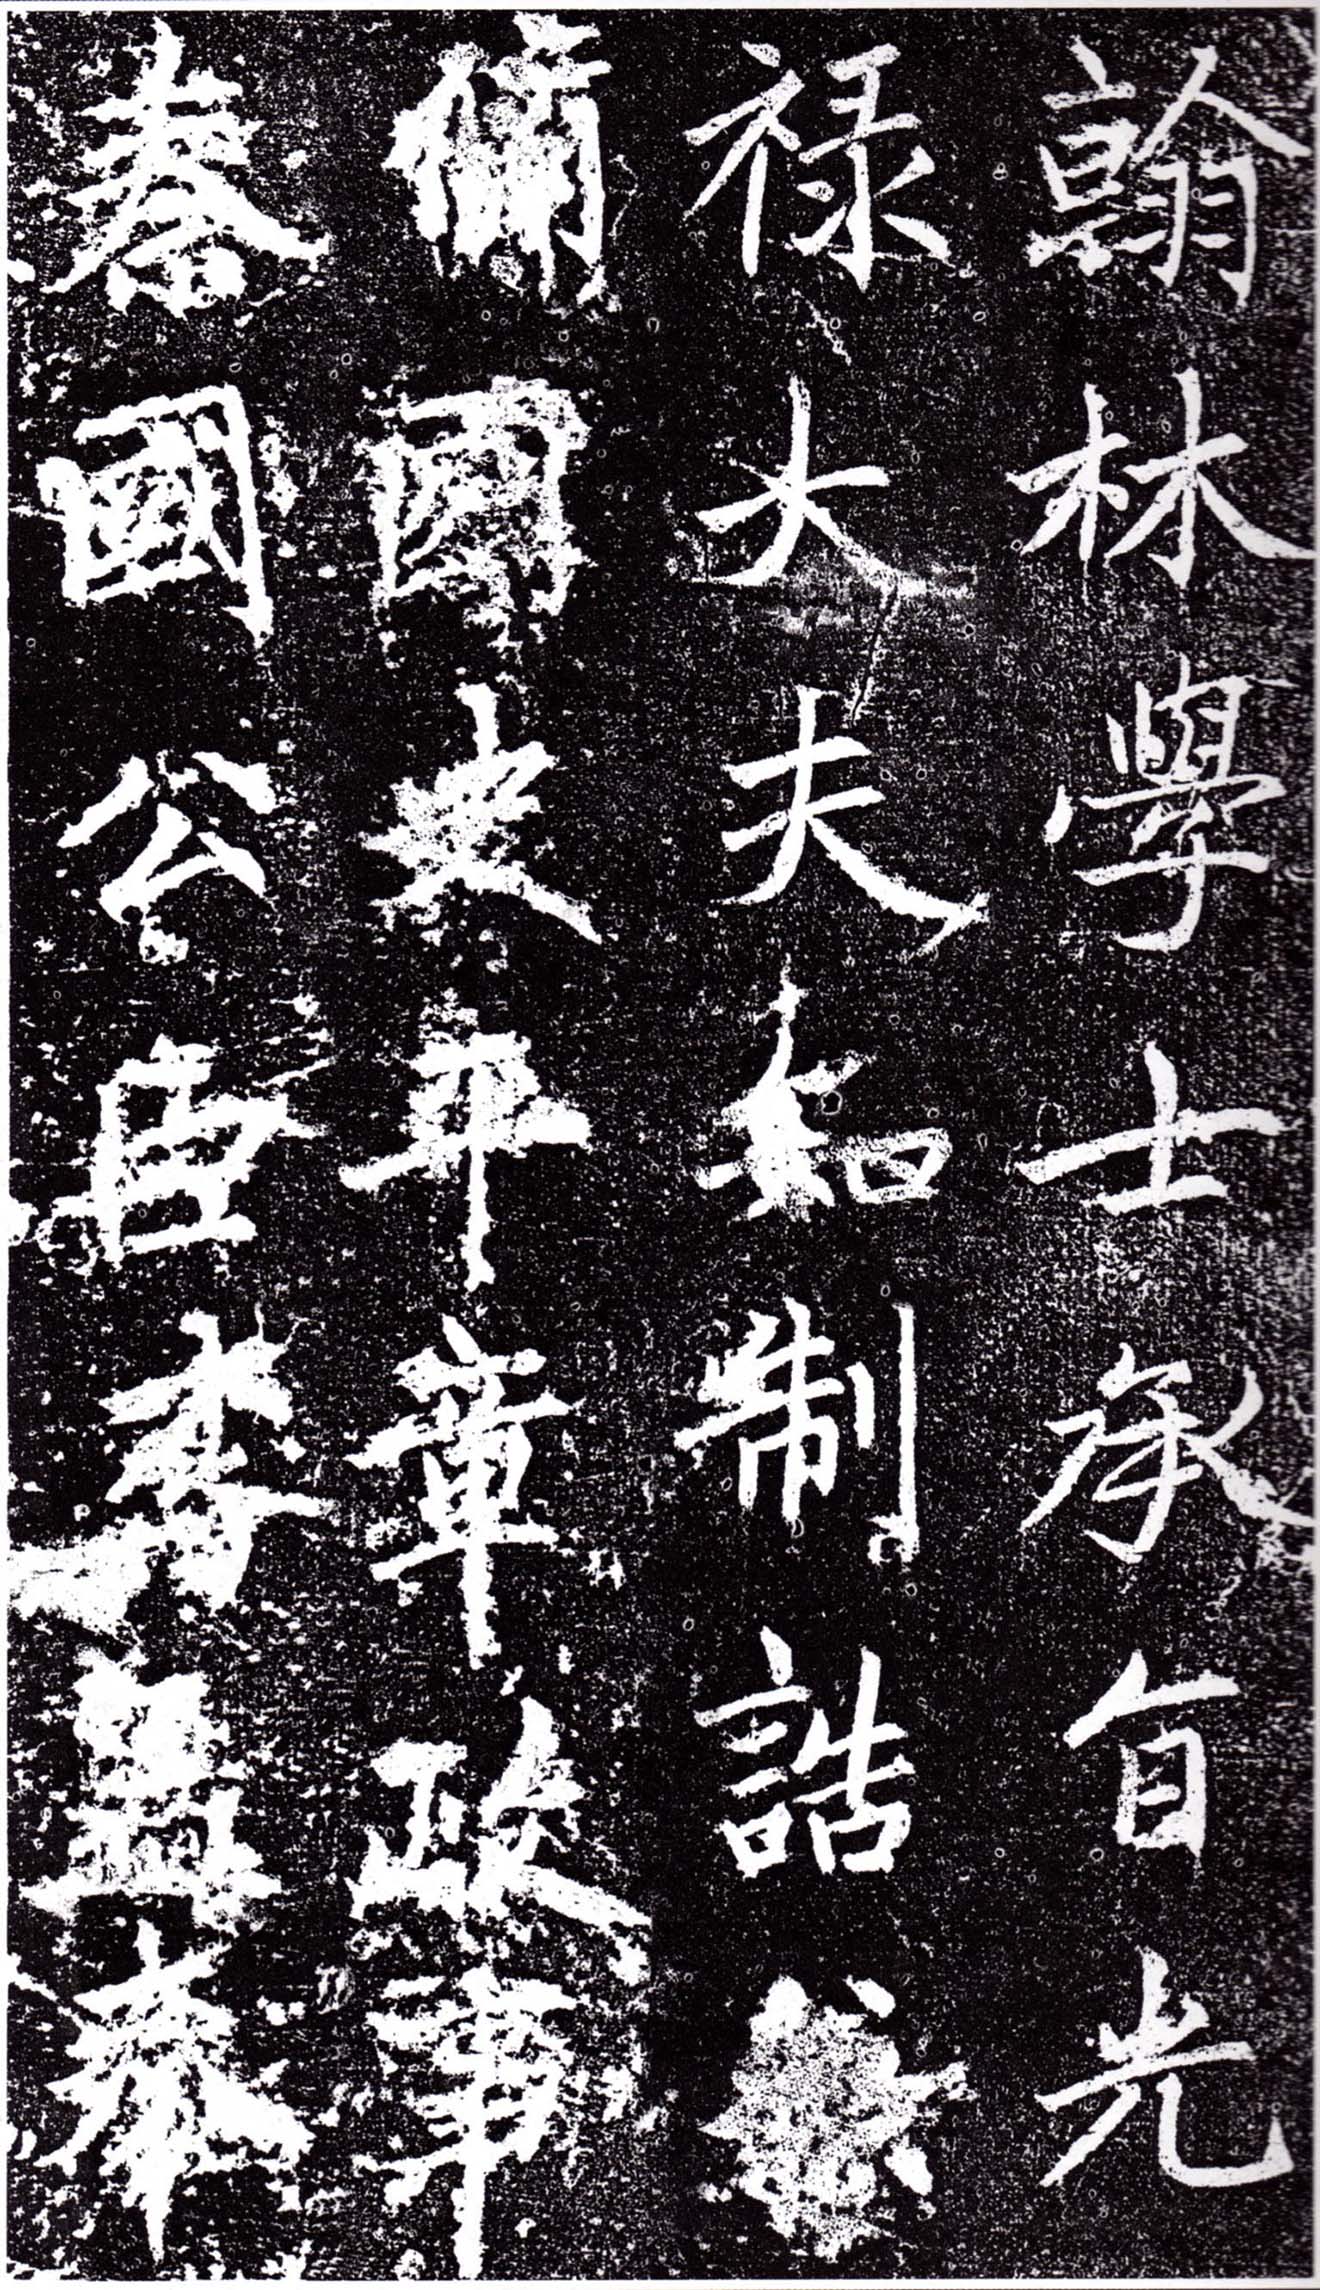 翰林學士承旨光
禄大夫知制誥兼
脩國史平章政事
秦國公臣李孟奉